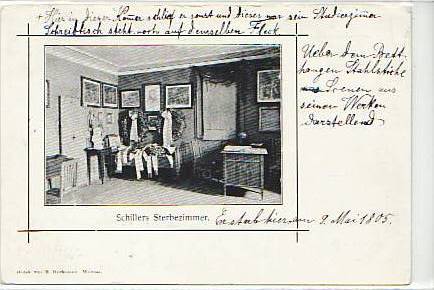 + Hier in dieser Kamer schlief er sonst und dieses war sein Studierzimmer
Schreibtisch steht noch auf demselben Fleck.
Ueber dem Bett
hangen Stahlstiche
Scenen aus
seinen Werken
darstellend
Schillers Sterbezimmer.
Er starb hier am 9. Mai 1805.